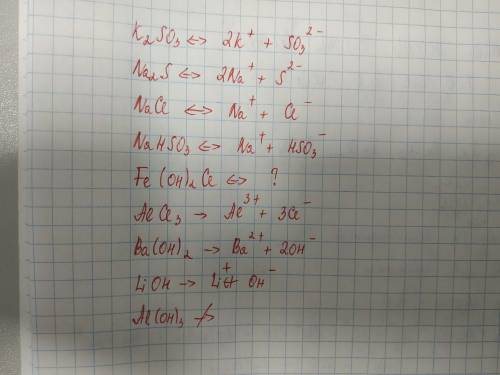 K₂SO₃ <=> 2K⁺ + SO₃²⁻
Na₂S <=> 2Na⁺ + S²⁻
NaCl <=> Na⁺ + Cl⁻
NaHSO₃ <=> Na⁺ + HSO₃⁻
Fe(OH)₂Cl <=> ?
AlCl₃ → Al³⁺ + 3Cl⁻
Ba(OH)₂ → Ba²⁺ + 2OH⁻
LiOH → Li⁺ + OH⁻
Al(OH)₃ ↛